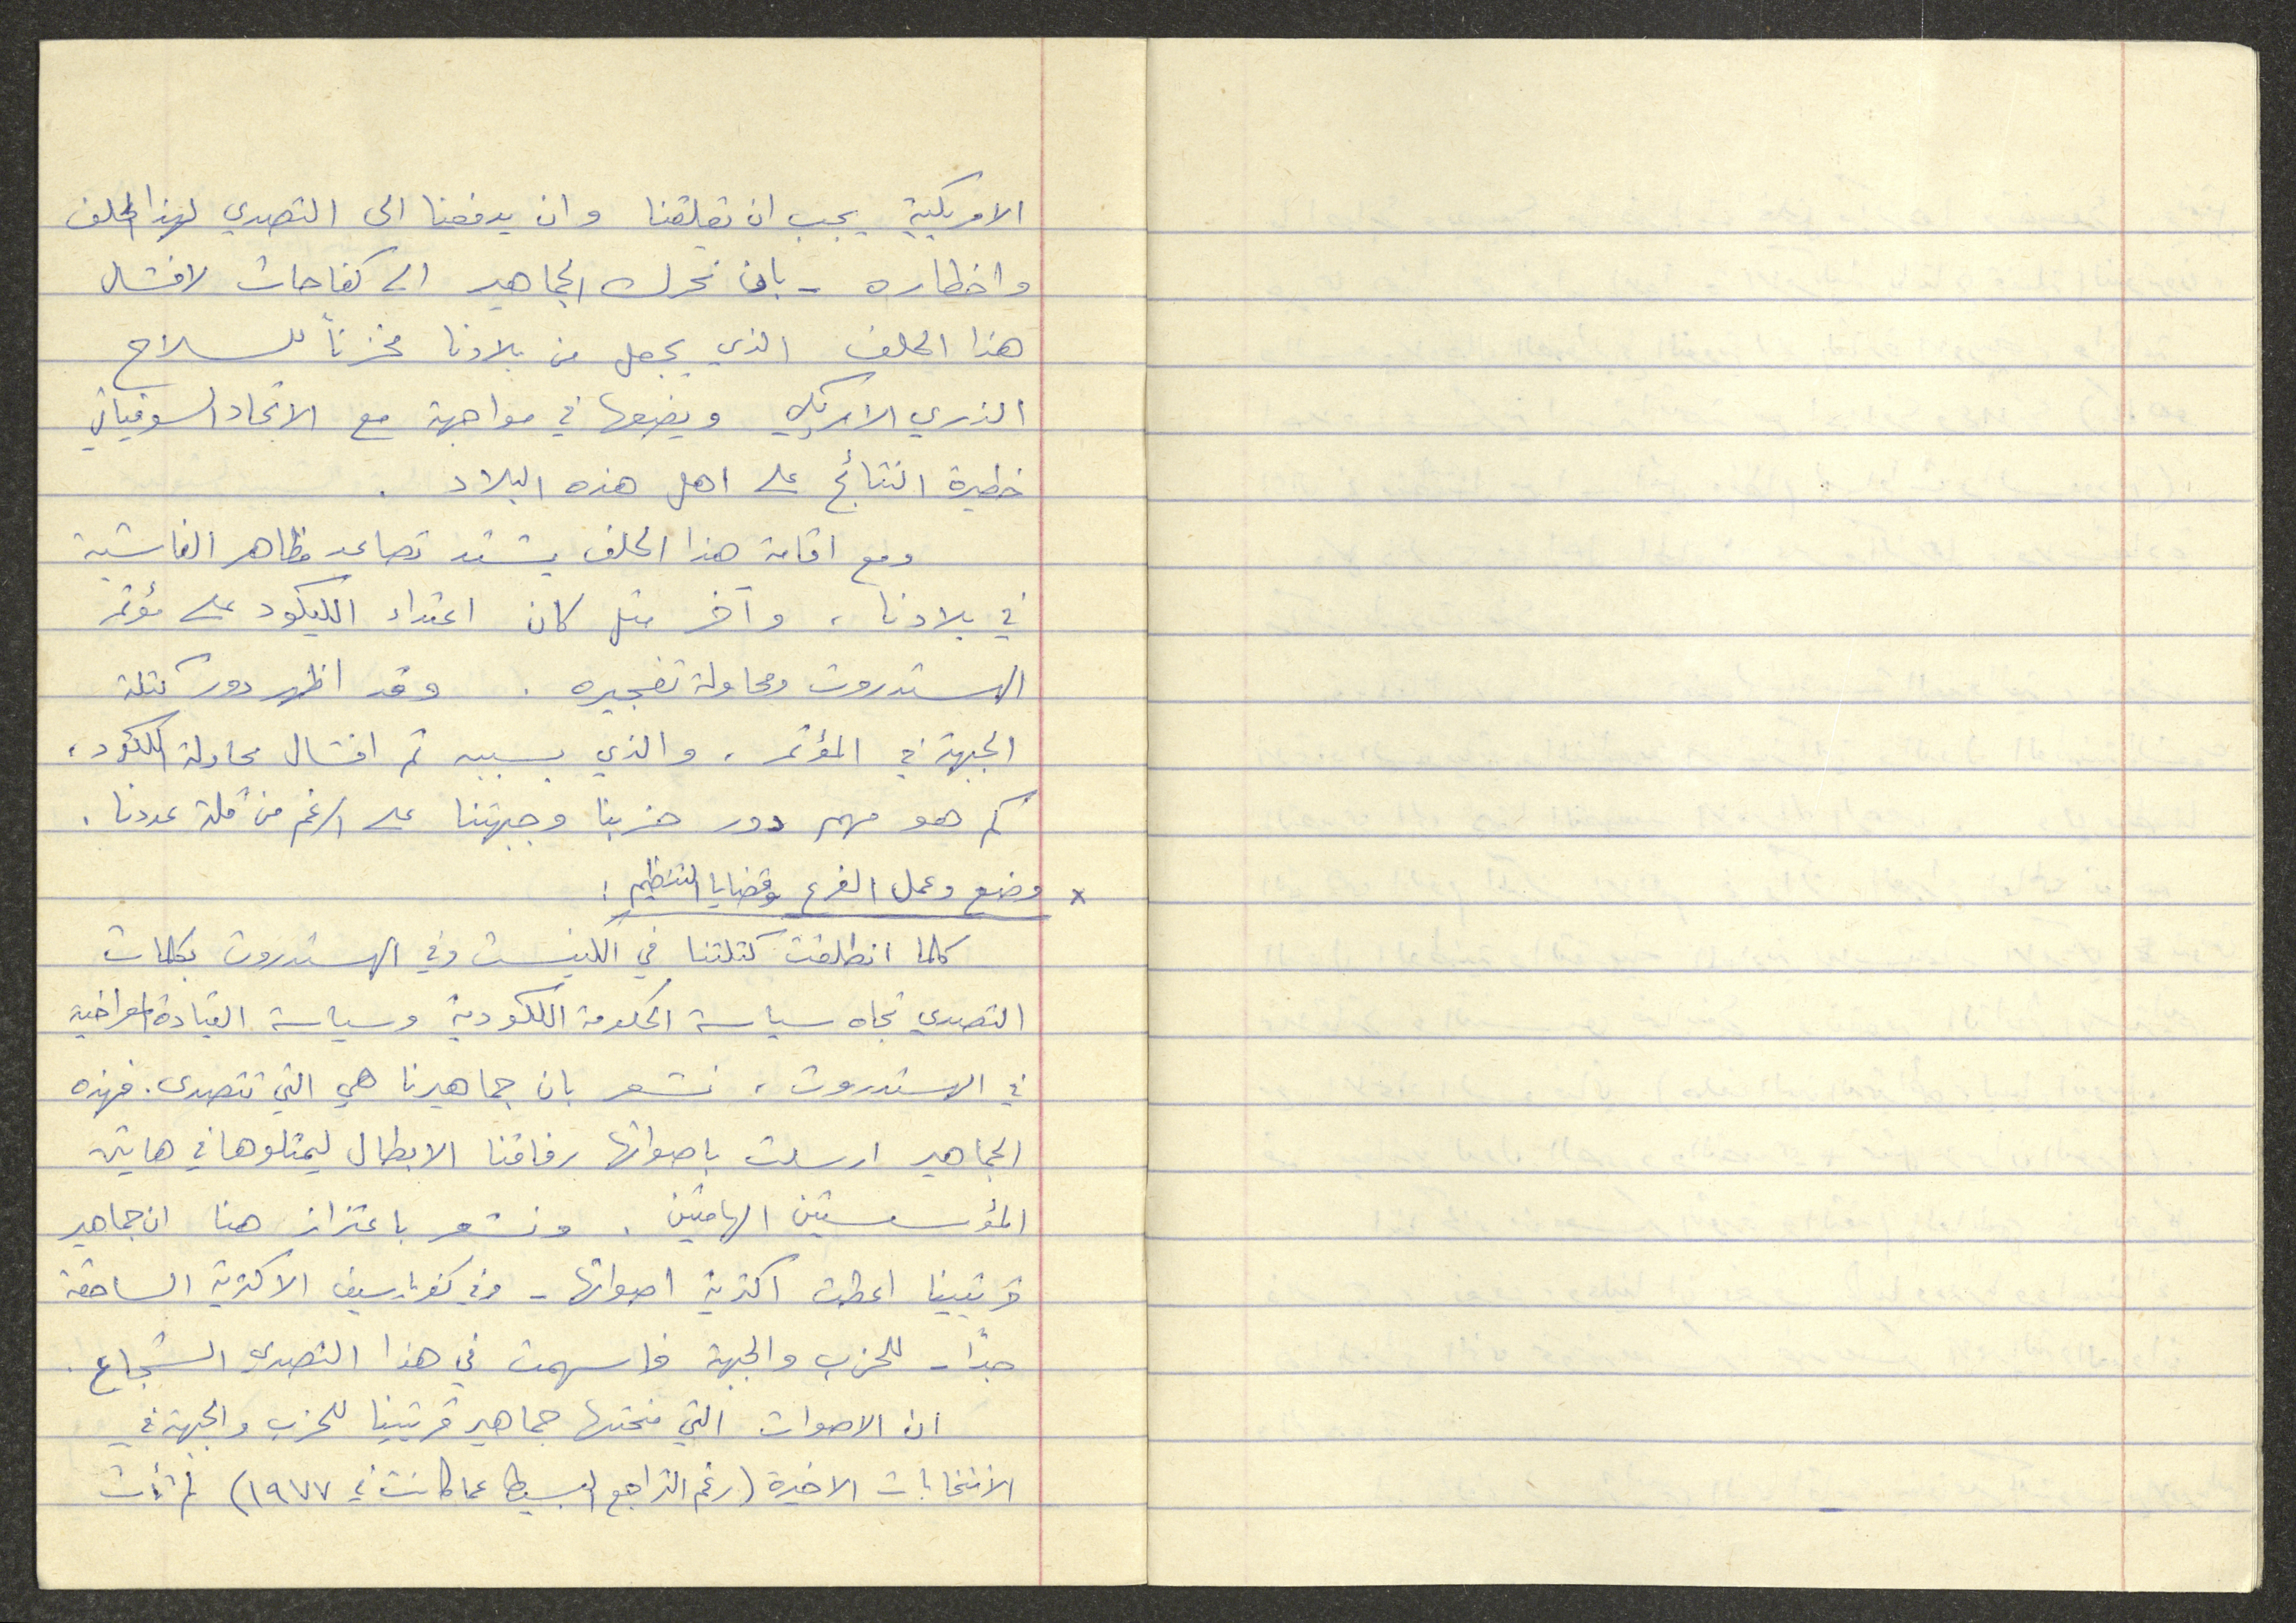 الامريكية يجب ان تقلقنا وان يدفعنا الى التصدي لهذا الحلف
واخطاره - بان نحرك الجماهير الى كفاحات لافشال
هذا الحلف الذي يجعل من بلادنا مخزناً للسلاح
الذري الامريكي ويضعها في مواجهة مع الاتحاد السوفياتي
خطيرة النتائج على اهل هذه البلاد .
ومع اقامة هذا الحلف يشتد تصاعد مظاهر الفاشية
في بلادنا ، وآخر مثل كان اعتداء الليكود على مؤتمر
الهستدروت ومحاولة تفجيره . وقد اظهر دور كتلة
الجبهة في المؤتمر ، والذي بسببه تم افشال محاولة الليكود ،
كم هو مهم دور حزبنا وجبهتنا على الرغم من قلة عددنا .
x وضع وعمل الفرع وقضايا التنظيم :
كلما انطلقت كتلتنا في الكنيست وفي الهستدروت بكلمات
التصدي تجاه سياسة الحكومة الليكودية وسياسة القيادة المعراخية
في الهستدروت ، نشعر بان جماهيرنا هي التي تتصدى . فهذه
الجماهير ارسلت باصواتها رفاقنا الابطال ليمثلوها في هاتين
المؤسستين الهامتين . ونشعر باعتزاز هنا ان جماهير
قريتينا اعطت اكثرية اصواتها - وفي كفر ياسيف الاكثرية الساحقة
جدًا - للحزب والجبهة فاسهمت في هذا التصدي الشجاع .
ان الاصوات التي منحتها جماهير قريتينا للحزب والجبهة في
الانتخابات الاخيرة (رغم التراجع البسيط عما كانت في ١٩٧٧) لم تأت